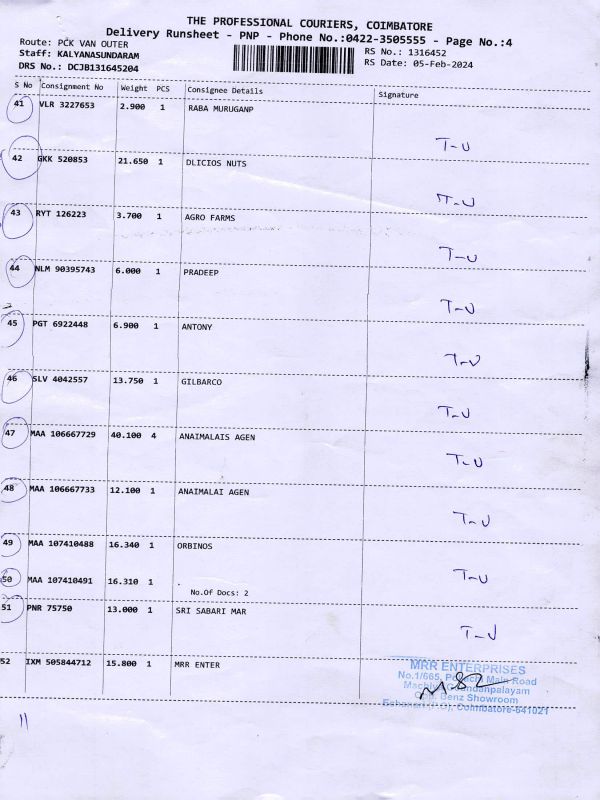 THE PROFESSIONAL COURIERS, COIMBATORE
Delivery Runsheet - PNP - Phone No.:0422-3505555 - Page No.:4
Route: PCK VAN OUTER RS No.: 1316452
Staff: KALYANASUNDARAM RS Date: 05-Feb-2024
DRS No.: DCJB131645204
S No Consignment No Weight PCS Consignee Details Signature
41 VLR 3227653 2.900 1 RABA MURUGANP
T-U
42 GKK 520853 21.650 1 DLICIOS NUTS
T-U
43 RYT 126223 3.700 1 AGRO FARMS
T-U
44 NLM 90395743 6.000 1 PRADEEP
T-U
45 PGT 6922448 6.900 1 ANTONY
T-U
46 SLV 4042557 13.750 1 GILBARCO
T-U
47 MAA 106667729 40.100 4 ANAIMALAIS AGEN
T-U
48 MAA 106667733 12.100 1 ANAIMALAI AGEN
T-U
49 MAA 107410488 16.340 1 ORBINOS
50 MAA 107410491 16.310 1 T-U
No.Of Docs: 2
51 PNR 75750 13.000 1 SRI SABARI MAR
T-U
52 IXM 505844712 15.800 1 MRR ENTER
MRR ENTERPRISES
No.1/665, Pollachi Main Road
Benz Showroom
Coimbatore-641021
11